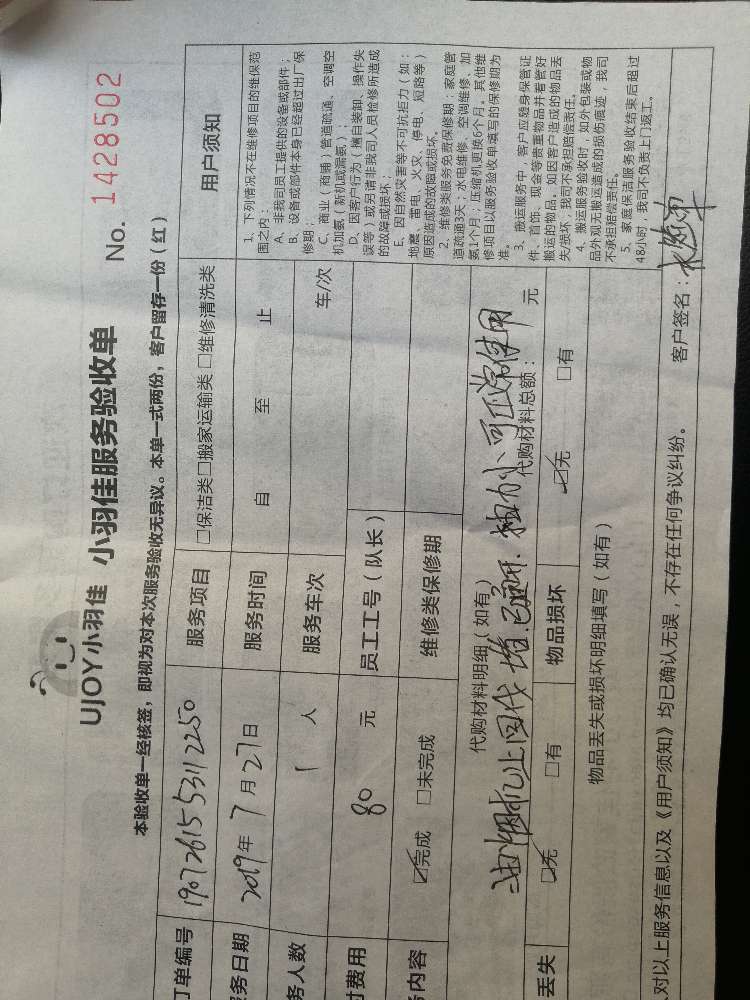 UJOY小羽佳 小羽佳服务验收单
No. 1428502
本验收单一经核签，即视为对本次服务验收无异议。本单一式两份，客户留存一份（红）
订单编号 190726155311 2250 服务项目 □保洁类□搬家运输类 □维修清洗类
服务日期 2019年 7月27日 服务时间 自 至 止
务人数 1 人 服务车次 车/次
付费用 80 元 员工工号（队长）
务内容 ☑完成 □未完成 维修类保修期
代购材料明细（如有）
油烟机止回伐堵，已疏开，抽力小，可正常使用
代购材料总额： 元
丢失 ☑无 □有 物品损坏 ☑无 □有
物品丢失或损坏明细填写（如有）
用户须知
1、下列情况不在维修项目的维保范
围之内：
A、非我司员工提供的设备或部件；
B、设备或部件本身已经超过出厂保
修期；
C、商业（商铺）管道疏通、空调空
机加氨（新机或漏氨）；
D、因客户行为（擅自装卸、操作失
误等）或另请非我司人员检修所造成
的故障或损坏；
E、因自然灾害等不可抗拒力（如：
地震、雷电、火灾、停电、短路等）
原因造成的故障或损坏。
2、维修类服务免费保修期：家庭管
道疏通3天；水电维修、空调维修、加
氨1个月；压缩机更换6个月。其他维
修项目以服务验收单填写的保修期为
准。
3、搬运服务中，客户应随身保管证
件、首饰、现金等贵重物品并看管好
搬运的物品，如因客户造成的物品丢
失/损坏，我司不承担赔偿责任。
4、搬运服务验收时，如外包装或物
品外观无搬运造成的损伤痕迹，我司
不承担赔偿责任。
5、家庭保洁服务验收结束后超过
48小时，我司不负责上门返工。
对以上服务信息以及《用户须知》均已确认无误，不存在任何争议纠纷。 客户签名：